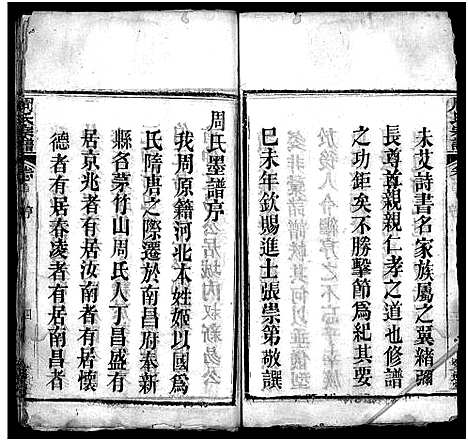 未艾詩書名家族屬之翼緒彌
長尊尊親親仁孝之道也修譜
之功鉅矣不勝擊節爲紀其要
巳未年欽賜進士張崇第敬譔
周氏墨譜序
我周原籍河北本姓姬以國爲
氏隋唐之際遷於南昌府奉新
縣名茅竹山周氏人丁昌盛有
居京兆者有居汝南者有居懷
德者有居春凌者有居南昌者